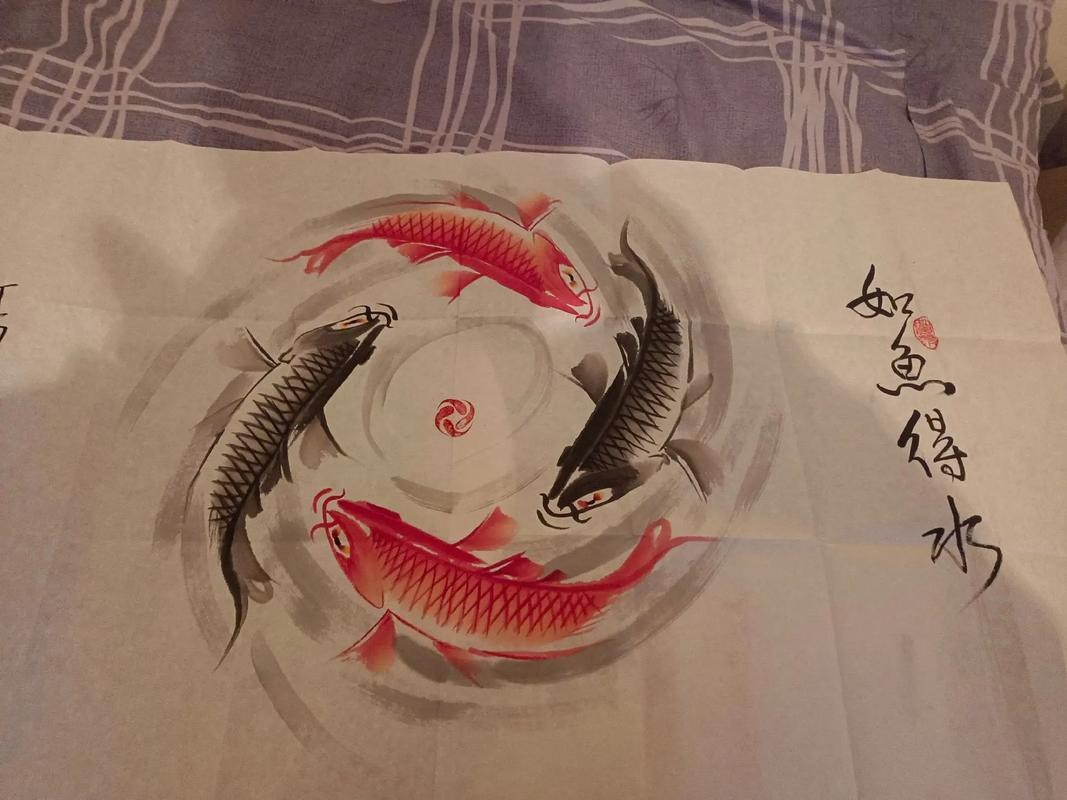 如魚得水